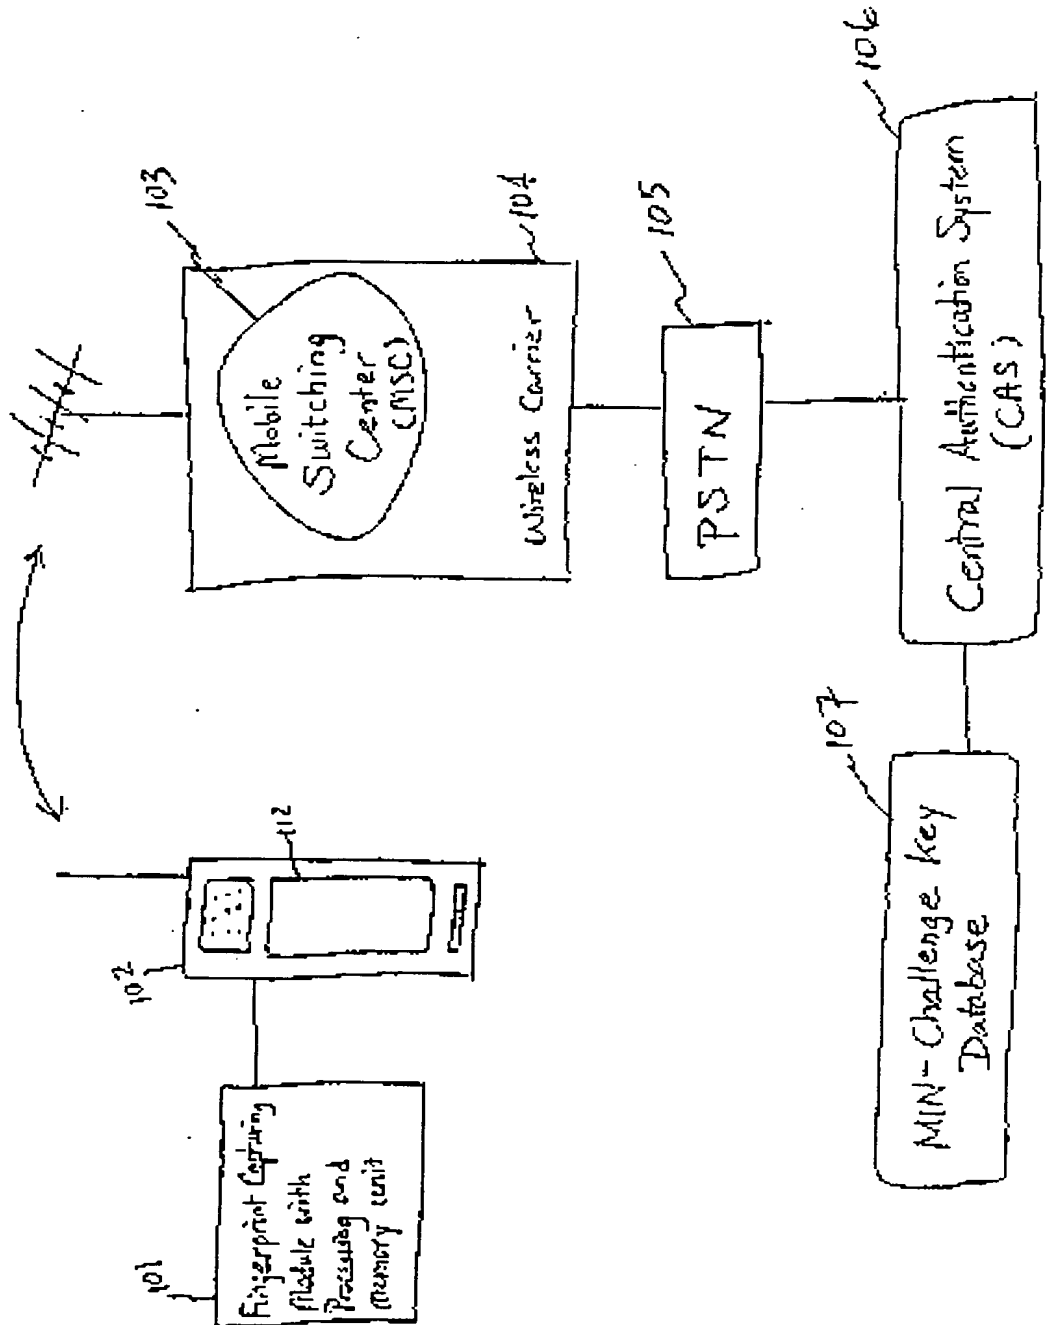 101
Fingerprint Capturing
Module with
Processing and
memory unit
102
112
103
Mobile
Switching
Center
(MSC)
Wireless Carrier
104
PSTN
105
Central Authentication System
(CAS)
106
MIN-Challenge Key
Database
107